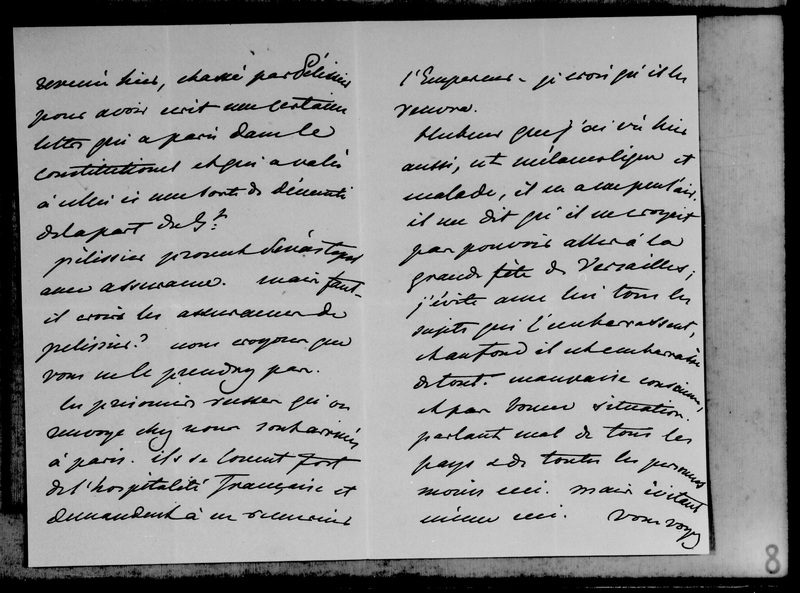 revenu hier, chassé par Pélissier
pour avoir ecrit une certaine
lettre qui a paru dans le
constitutionel et qui a valu
à celui ci une sorte de démenti
de la part du Gt.
pélissier promet Sévastopol
avec assurance. mais faut-
il croire les assurances de
pelissier? nous croyons que
vous ne le prendrez pas.
les prisoniers russes qu'on
renvoye chez nous sont arrivés
à paris. ils se louent fort
de l'hospitalité française et
demandent à en remercier
l'Empereur - je crois qu'il les
verra.
que j'ai vu hier
aussi, est mélancolique et
malade, il en a un peu l'air.
il me dit qu'il ne croyait
pas pouvoir aller à la
grande fête de Versailles;
j'évite avec lui tous les
sujets qui l'embarrassent,
chaufond il est embarrassé
de tout. mauvaise conscience,
et pas bonne situation.
parlant mal de tous les
pays et de toutes les personnes
moins ceci. mais
même ceci. vous voyez
8